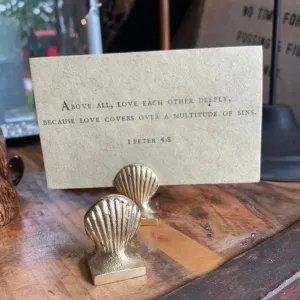 Above all, love each other deeply,
because love covers over a multitude of sins.
1 Peter 4Æ
NO TIME
FOR